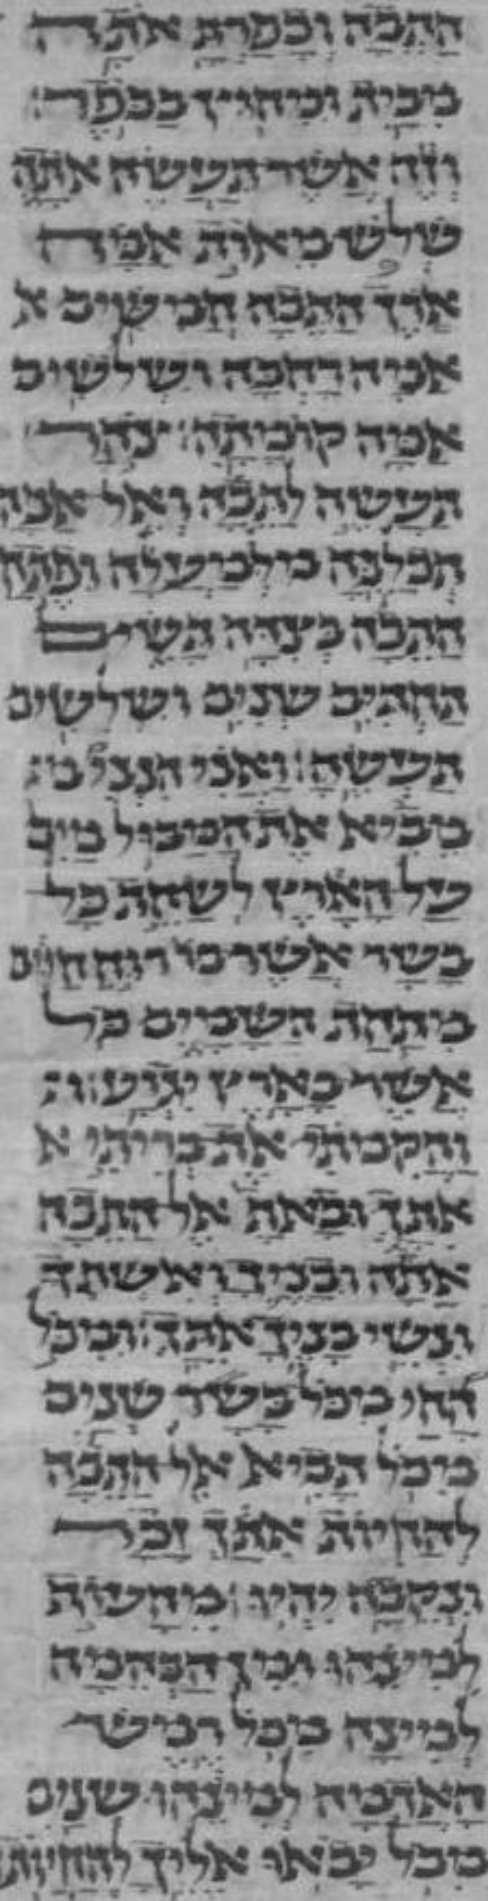 הַתֵּבָה וְכָפַרְתָּ אֹתָהּ
מִבַּיִת וּמִחוּץ בַּכֹּפֶר׃
וְזֶה אֲשֶׁר תַּעֲשֶׂה אֹתָהּ
שְׁלֹשׁ מֵאוֹת אַמָּה
אֹרֶךְ הַתֵּבָה חֲמִשִּׁים א
אַמָּה רָחְבָּהּ וּשְׁלֹשִׁים
אַמָּה קוֹמָתָהּ׃ צֹהַר
תַּעֲשֶׂה לַתֵּבָה וְאֶל אַמָּה
תְּכַלֶּנָּה מִלְמַעְלָה וּפֶתַח
הַתֵּבָה בְּצִדָּהּ תָּשִׂים
תַּחְתִּיִּם שְׁנִיִּם וּשְׁלִשִׁים
תַּעֲשֶׂהָ׃ וַאֲנִי הִנְנִי מ
מֵבִיא אֶת הַמַּבּוּל מַיִם
עַל הָאָרֶץ לְשַׁחֵת כָּל
בָּשָׂר אֲשֶׁר בּוֹ רוּחַ חַיִּים
מִתַּחַת הַשָּׁמָיִם כֹּל
אֲשֶׁר בָּאָרֶץ יִגְוָע׃ ו
וַהֲקִמֹתִי אֶת בְּרִיתִי א
אִתָּךְ וּבָאתָ אֶל הַתֵּבָה
אַתָּה וּבָנֶיךָ וְאִשְׁתְּךָ
וּנְשֵׁי בָנֶיךָ אִתָּךְ׃ וּמִכָּל
הָחַי מִכָּל בָּשָׂר שְׁנַיִם
מִכֹּל תָּבִיא אֶל הַתֵּבָה
לְהַחֲיוֹת אִתָּךְ זָכָר
וּנְקֵבָה יִהְיוּ׃ מֵהָעוֹף
לְמִינֵהוּ וּמִן הַבְּהֵמָה
לְמִינָהּ מִכֹּל רֶמֶשׂ
הָאֲדָמָה לְמִינֵהוּ שְׁנַיִם
מִכֹּל יָבֹאוּ אֵלֶיךָ לְהַחֲיוֹת